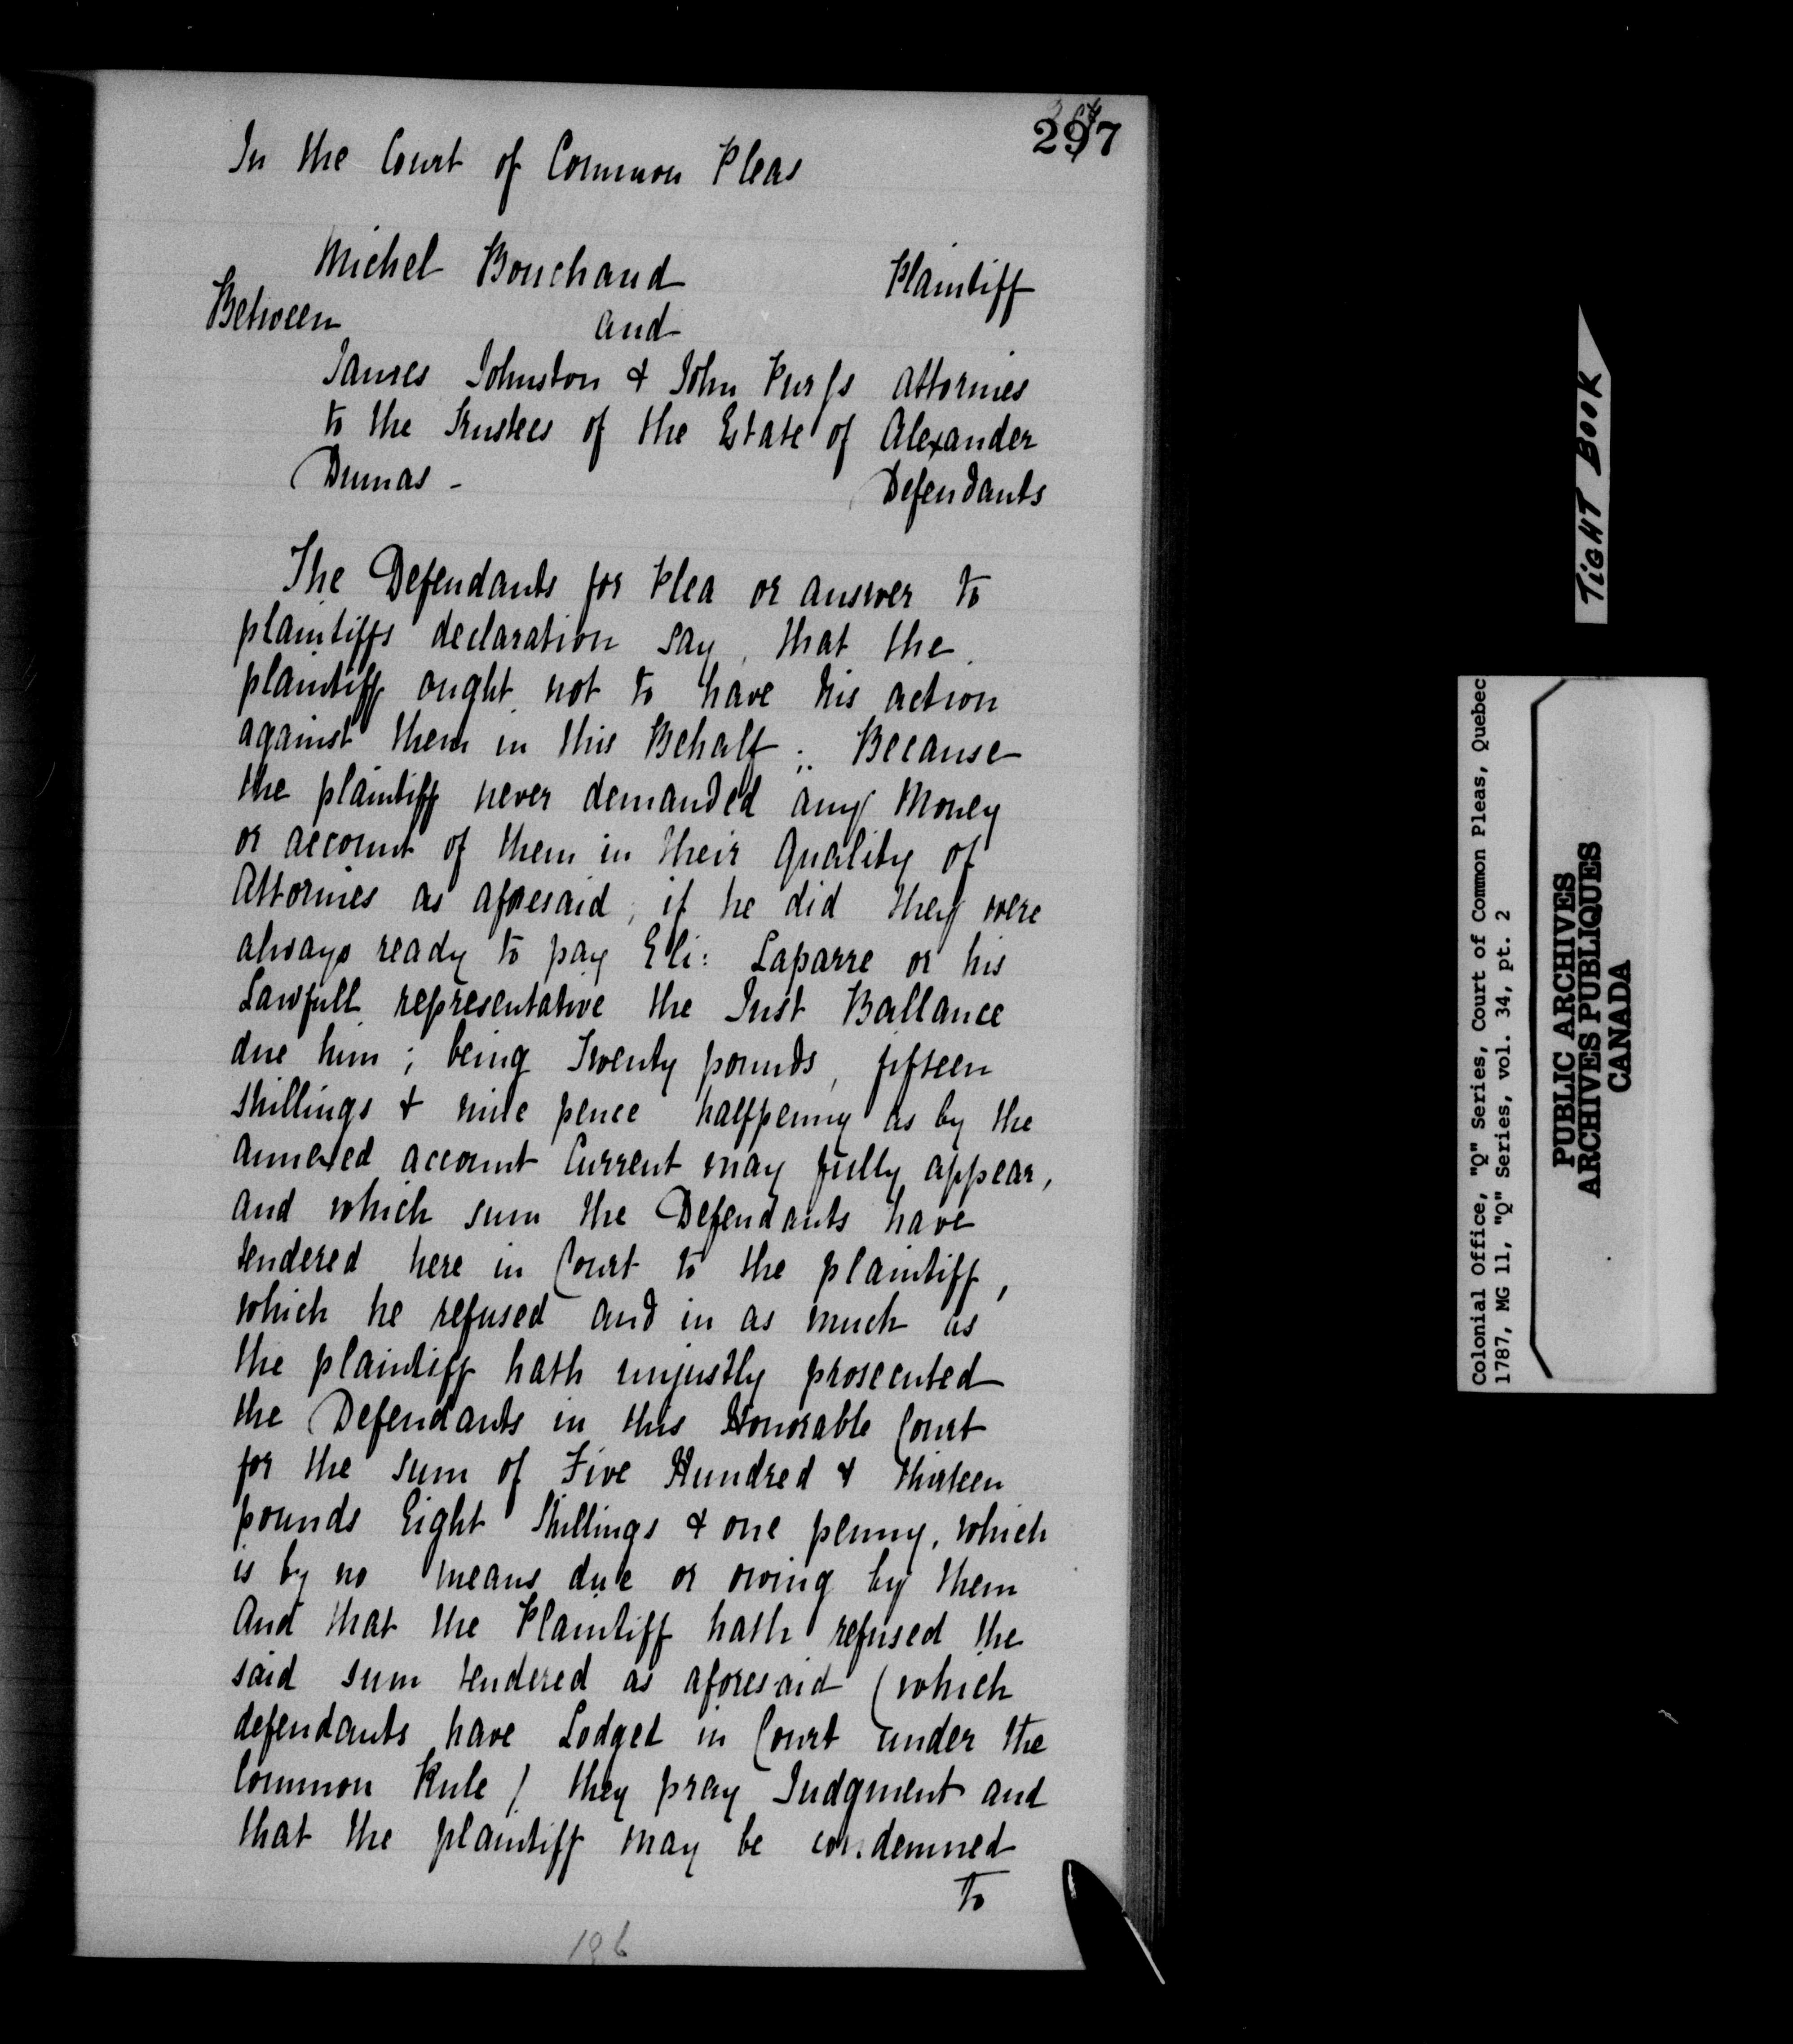 297
In the Court of Common Pleas
Michel Bouchaud Plaintiff
Between and
James Johnston & John Purss Attornies
to the Trustees of the Estate of Alexander
Dumas - Defendants
The Defendants for Plea or answer to
plaintiffs declaration say, that the
plaintiff ought not to have his action
against them in this Behalf; Because
the plaintiff never demanded any Money
or account of them in their Quality of
Attornies as aforesaid, if he did they were
always ready to pay Eli: Laparre or his
Lawfull representative the Just Ballance
due him; being Twenty pounds, fifteen
shillings & nine pence halfpenny as by the
annexed account Current may fully appear,
and which sum the Defendants have
tendered here in Court to the plaintiff,
which he refused and in as much as
the plaintiff hath unjustly prosecuted
the Defendants in this Honorable Court
for the sum of Five Hundred & thirteen
pounds Eight Shillings & one penny, which
is by no means due or owing by them
And that the Plaintiff hath refused the
said sum tendered as aforesaid (which
defendants have Lodged in Court under the
Common Rule) they pray Judgment and
that the plaintiff may be condemned
To
186
TIGHT BOOK
Colonial Office, "Q" Series, Court of Common Pleas, Quebec
1787, MG 11, "Q" Series, vol. 34, pt. 2
PUBLIC ARCHIVES
ARCHIVES PUBLIQUES
CANADA